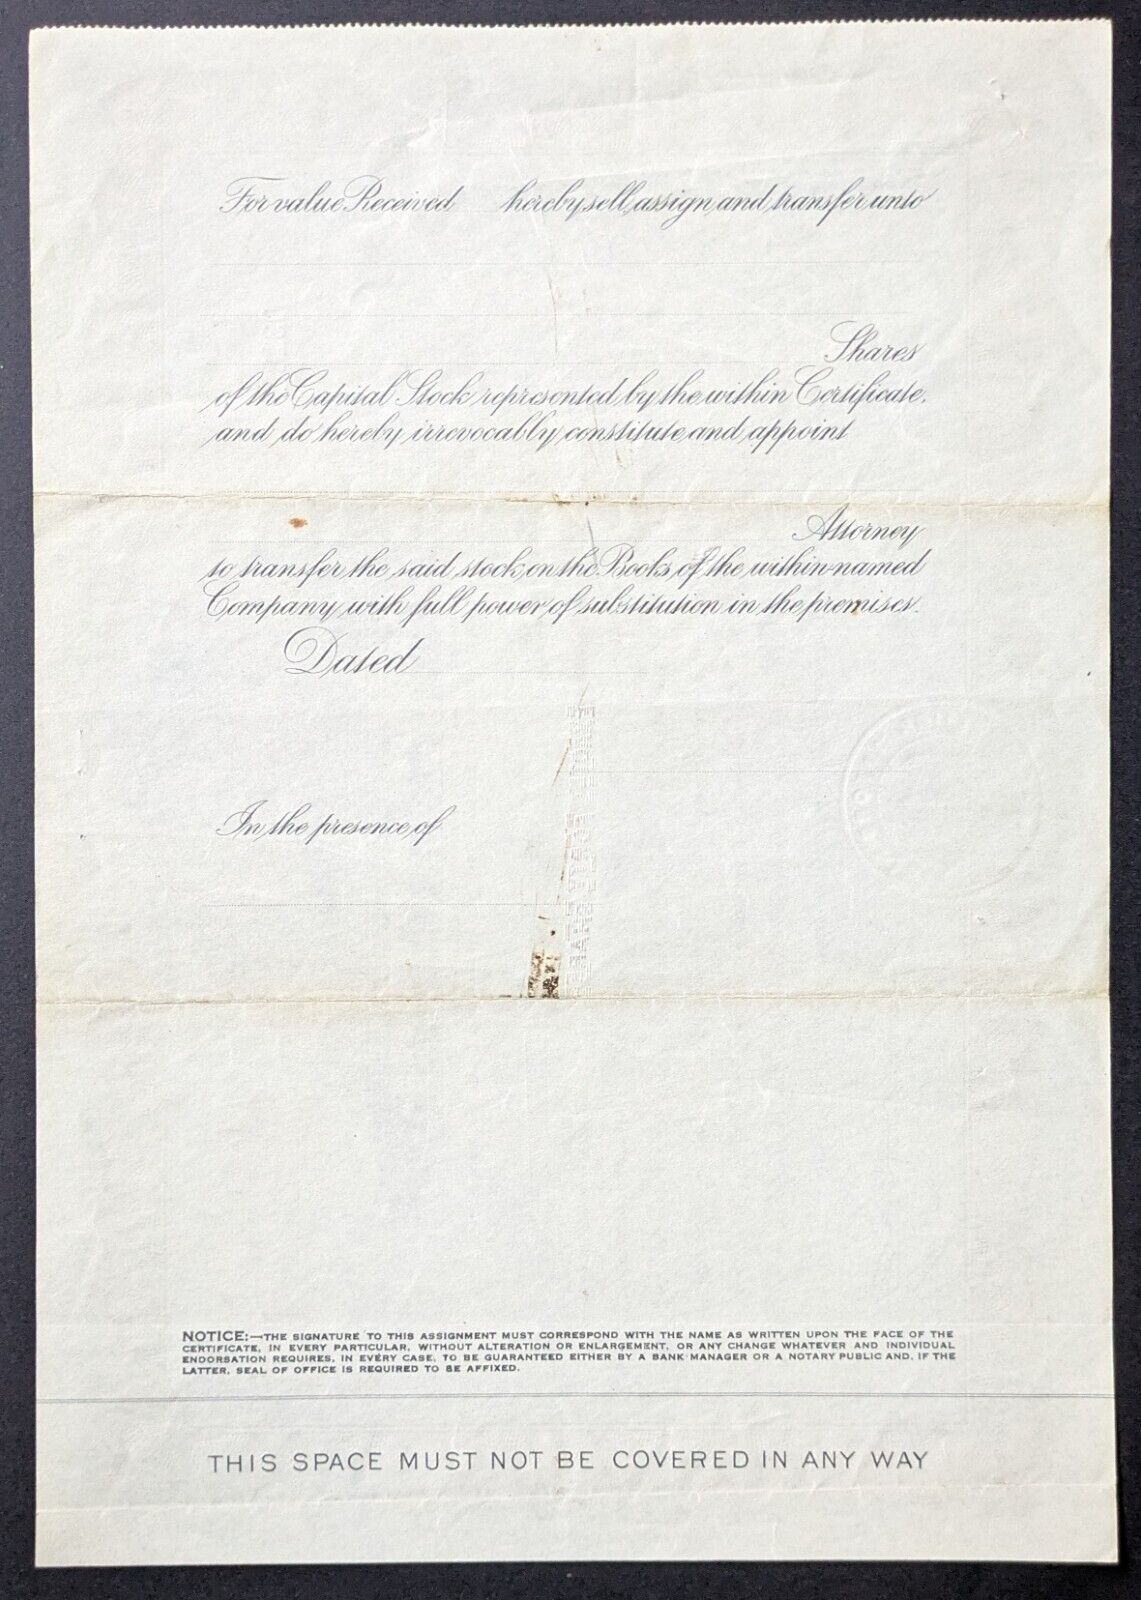 For value Received hereby sell, assign and transfer unto
Shares
of the Capital Stock represented by the within Certificate.
and do hereby irrevocably constitute and appoint
Attorney
to transfer the said stock on the Books of the within-named
Company with full power of substitution in the premises.
Dated
In the presence of
NOTICE:—THE SIGNATURE TO THIS ASSIGNMENT MUST CORRESPOND WITH THE NAME AS WRITTEN UPON THE FACE OF THE
CERTIFICATE, IN EVERY PARTICULAR, WITHOUT ALTERATION OR ENLARGEMENT, OR ANY CHANGE WHATEVER AND INDIVIDUAL
ENDORSATION REQUIRES, IN EVERY CASE, TO BE GUARANTEED EITHER BY A BANK MANAGER OR A NOTARY PUBLIC AND, IF THE
LATTER, SEAL OF OFFICE IS REQUIRED TO BE AFFIXED.
THIS SPACE MUST NOT BE COVERED IN ANY WAY